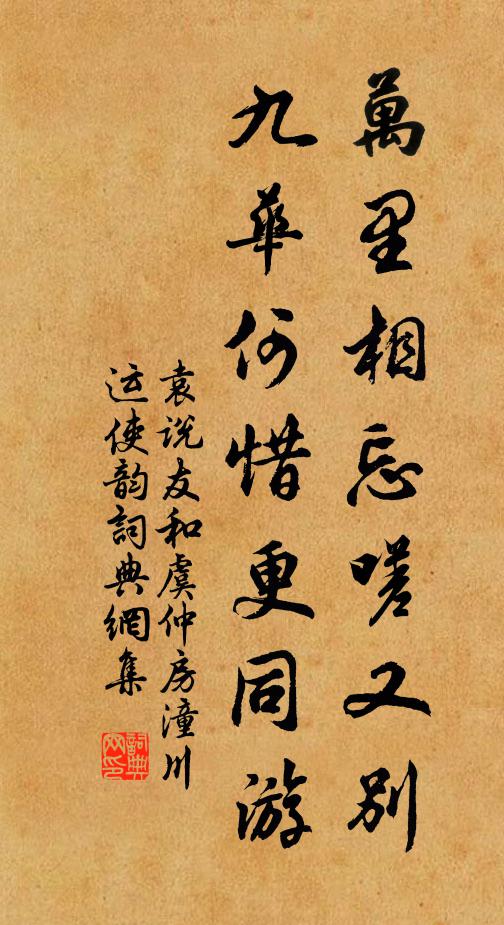 萬里相忘嗟又别
九華何惜更同游
袁说友和虞仲房潼川
运使韵詞典網集
詞典网印